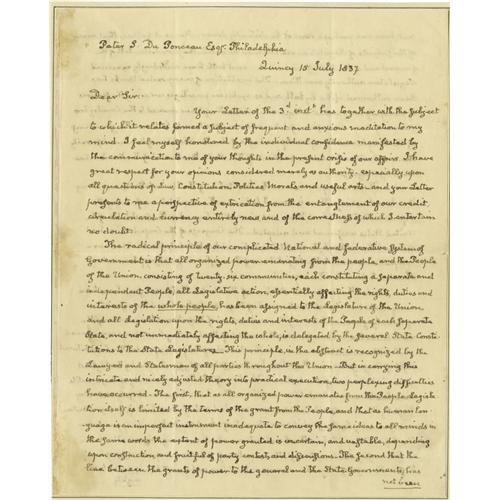 Peter S. Du Ponceau Esqr. Philadelphia
Quincy 15 July 1837.
Dear Sir.
Your Letter of the 3d instt has together with the subject
to which it relates formed a subject of frequent and anxious meditation to my
mind. I feel myself honoured by the individual confidence manifested by
the communication to me of your thoughts in the present crisis of our affairs. I have
great respect for your opinions considered merely as authority—especially upon
all questions of Law, Constitution, Politics Morals and useful arts—and your Letter
presents to me a perspective of extrication from the entanglement of our credit,
circulation and currency entirely new and of the correctness of which I entertain
no doubt.
The radical principle of our complicated National and federative System of
Government is that all organized power emanating from the people, and the People
of the Union consisting of twenty six communities, each constituting a separate and
independent People, all Legislative action, essentially affecting the rights, duties and
interests of the whole people, has been assigned to the legislature of the Union
and all legislation upon the rights, duties and interests of the People of each separate
State, and not immediately affecting the whole, is delegated by the several State Consti-
tutions to the State Legislatures. This principle, in the abstract is recognized by the
Lawyers and Statesmen of all parties throughout the Union. But in carrying this
intricate and nicely adjusted theory into practical execution, two perplexing difficulties
have occurred. The first, that as all organized power emanates from the People, legisla-
tion itself is limited by the terms of the grant from the People, and that as human lan-
guage is an imperfect instrument inadequate to convey the same ideas to all minds in
the same words the extent of power granted is uncertain, and unstable, depending
upon construction and fruitful of party contests and dissensions. The second that the
line between the grants of power to the general and the State Governments, has
not been